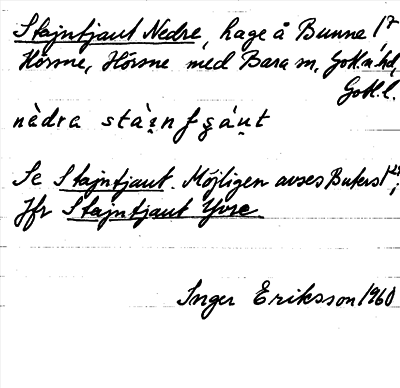 Stajnfjaut Nedre, hage å Bunne 1⁷
Hörsne, Hörsne med Bara sn, Gotl. n. hd,
Gotl. l.
nèdra stàı̣nfʂáụt
Se Stajnfjaut. Möjligen avses Buters 1²⁴;
Jfr Stajnfjaut Yvre.
Inger Eriksson 1960